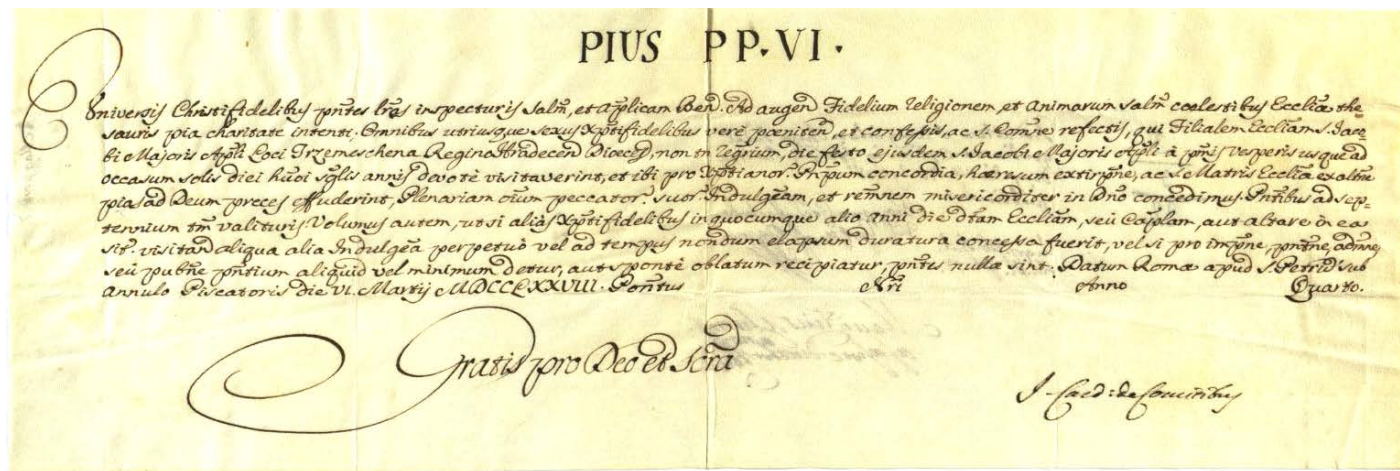 PIUS PP. VI.
Universis Christifidelibus pñtes lrãs inspecturis salm̃, et Ap̃licam Ben. Ad augen Fidelium religionem, et animarum salm̃ coelestibus Eccliæ the=
sauris pia charitate intenti. Omnibus utriusque sexus Xp̃tifidelibus verè pœniten, et confessis, ac S. Com̃ne refectis, qui Filialem Eccliam S. Jaco=
bi Majoris Ap̃li Loci Trzemeschena Regino Hradecen Dioeces, non tn̄ regrium, die festo ejusdem S. Jacobi Majoris Ap̃li à p̃mis Vesperis usque ad
occasum solis diei hũoi sg̃lis annis devotè visitaverint, et ibi pro Xp̃tianor. Pñpum concordia, hæresum extirp̃ne, ac S. Matris Eccliæ exaltne
pias ad Deum preces effuderint, Plenariam oĩum peccator. suor. Indulgẽam, et rem̃nem misericorditer in Dñо concedimus. Pñtibus ad sep=
tennium tm̃ valituris. Volumus autem, ut si alias Xp̃tifidelibus in quocumque alio anni die dtam Eccliam, seù Cap̃lam, aut altare in ea
sit. visitan aliqua alia Indulgẽa perpetuò vel ad tempus nondum elapsum duratura concessa fuerit, vel si pro imp̃ne, pñtne, adm̃ne,
seù pub̃ne pñtium aliquid vel minimum detur, aut spontè oblatum recipiatur, pñtes nullæ sint. Datum Romæ apud S. Petrum sub
Annulo Piscatoris die VI. Martij MDCCLXXVIII. Pontus Nri Anno Quarto.
Gratis pro Deo et Scrã
J. Card: de Comitibus